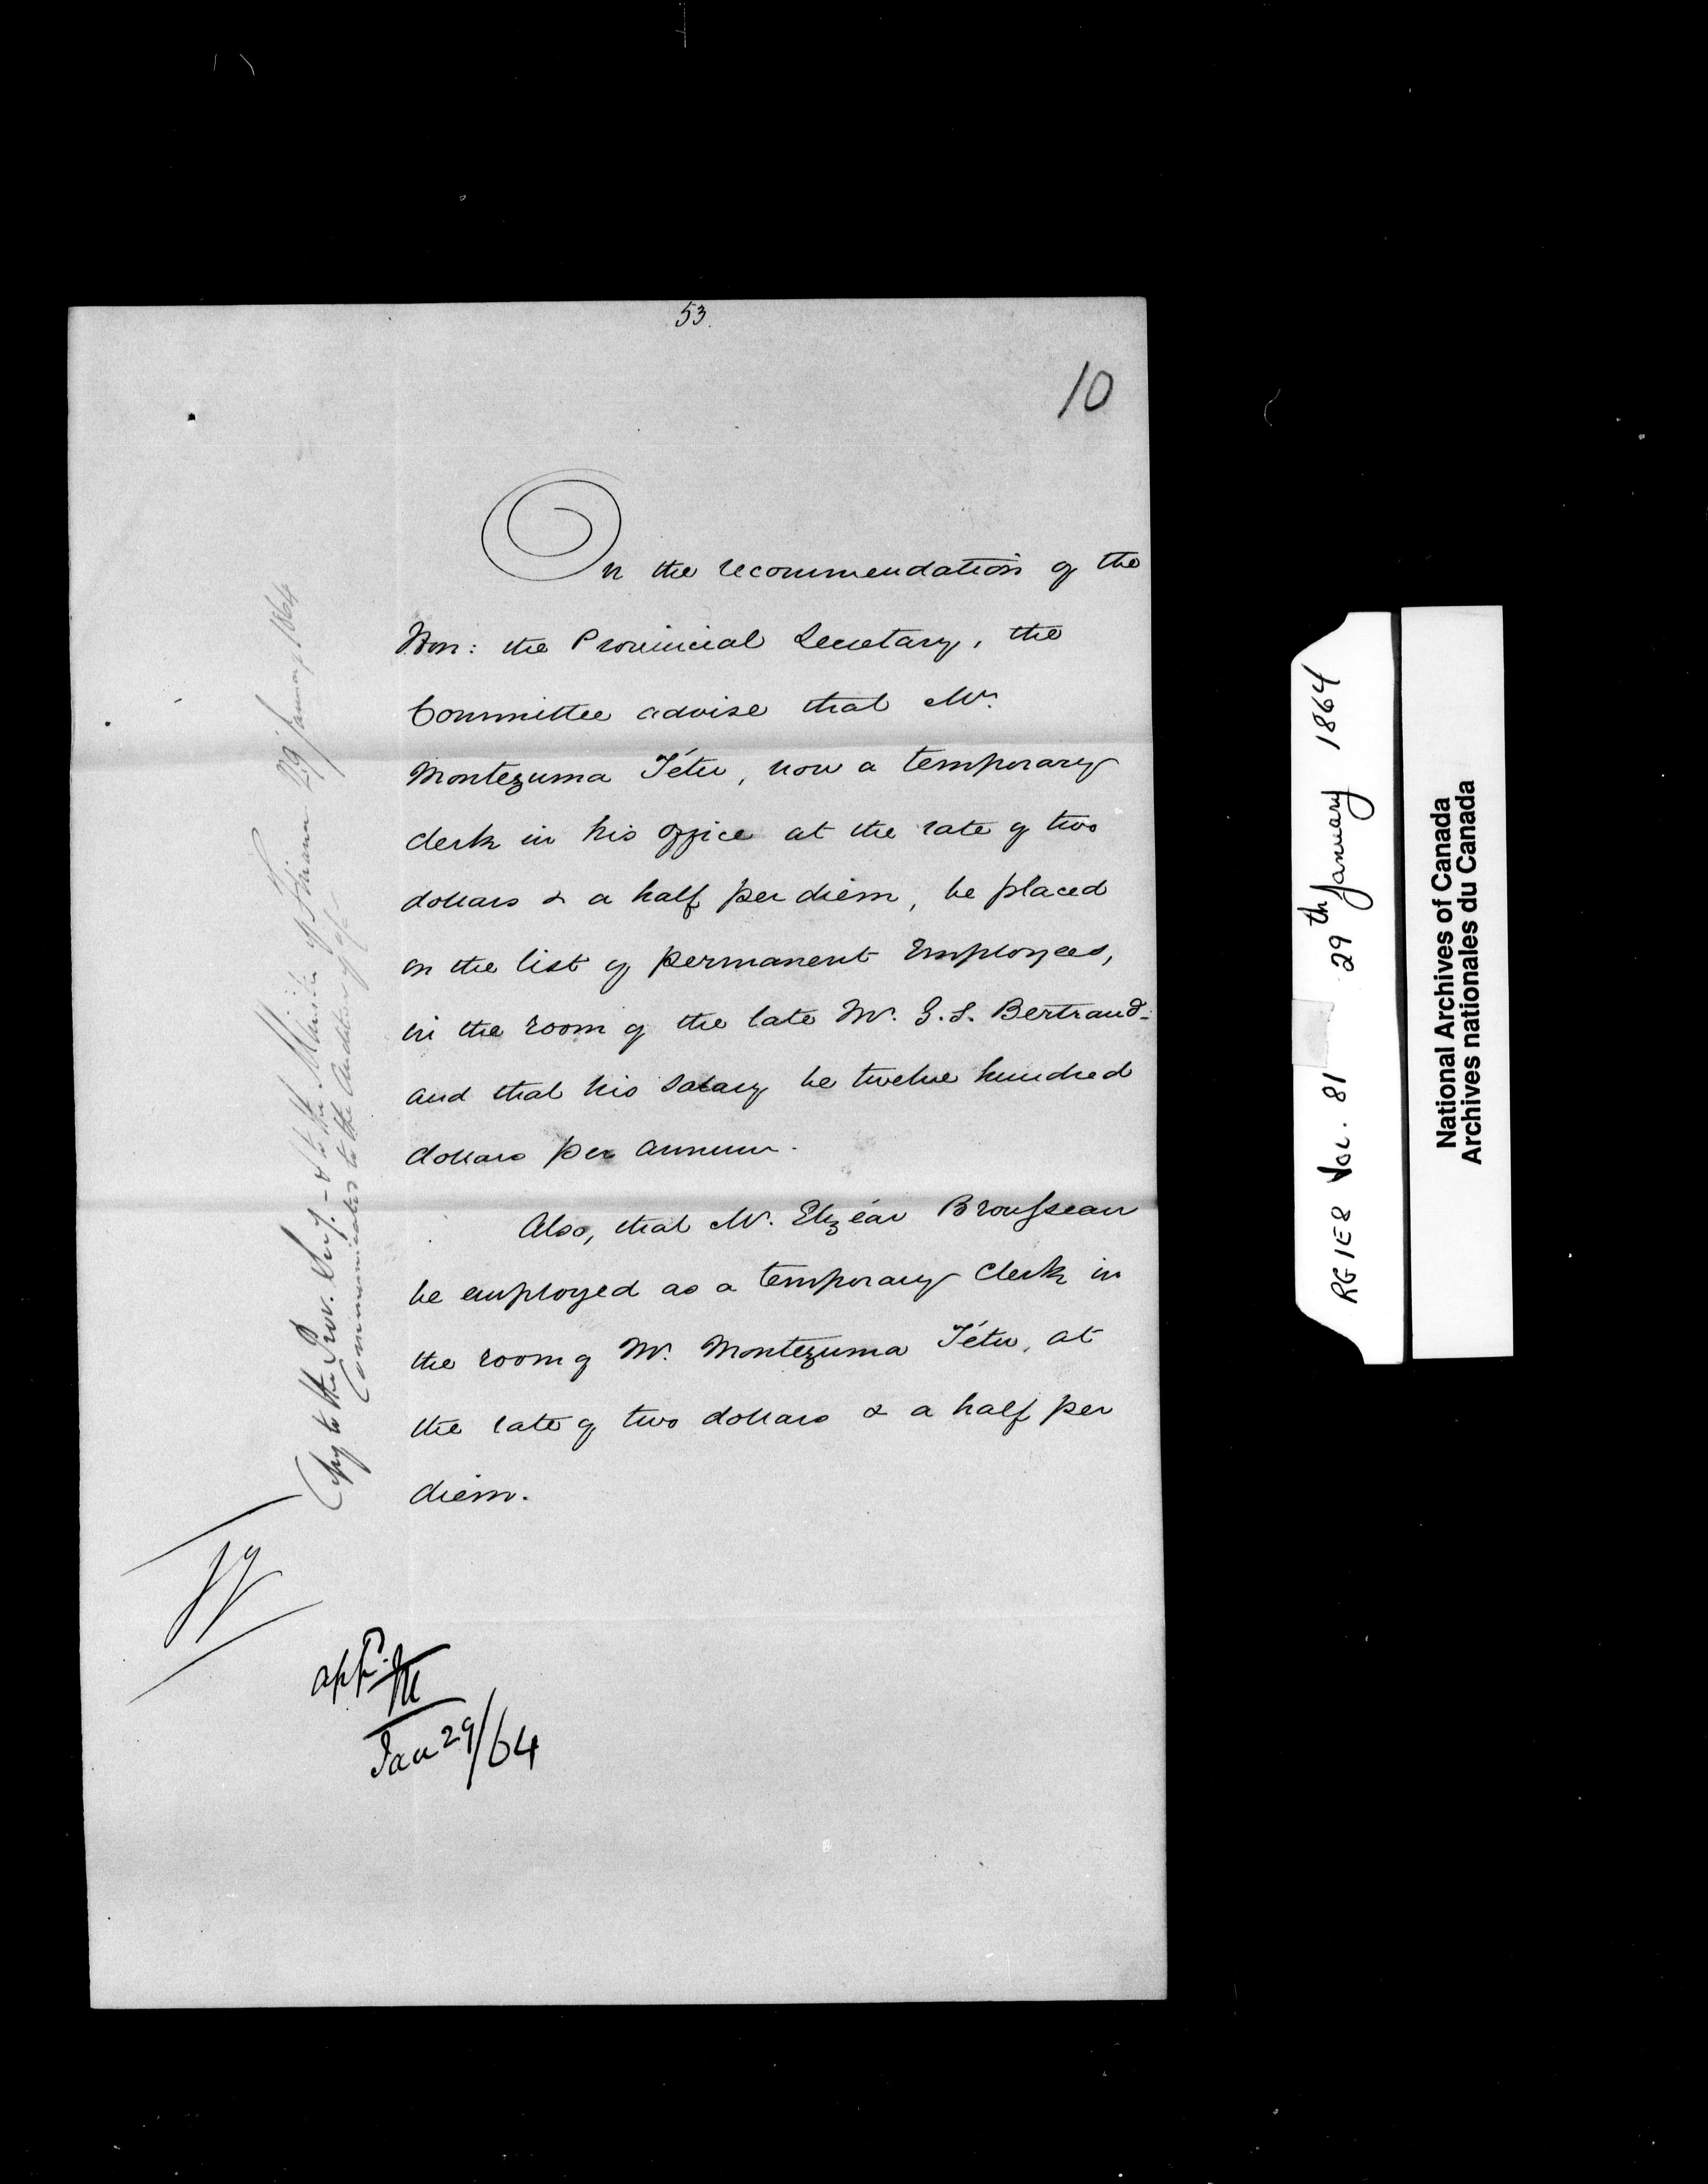 53.
10
On the recommendation of the
Hon: the Provincial Secretary, the
Committee advise that Mr.
Montezuma Têtu, now a temporary
clerk in his office at the rate of two
dollars & a half per diem, be placed
on the list of permanent Employees,
in the room of the late Mr. G. S. Bertrand-
and that his salary be twelve hundred
dollars per annum.
Also, that Mr. Elzéar Brousseau
be employed as a temporary Clerk in
the room of Mr. Montezuma Têtu, at
the rate of two dollars & a half per
diem.
Copy to the Prov. Secy. - & to the Minister of Finance 29 January 1864
Communicated to the Auditor
appd. M
Jan 29/64
RG1E8 Vol. 81 29th January 1864
National Archives of Canada
Archives nationales du Canada